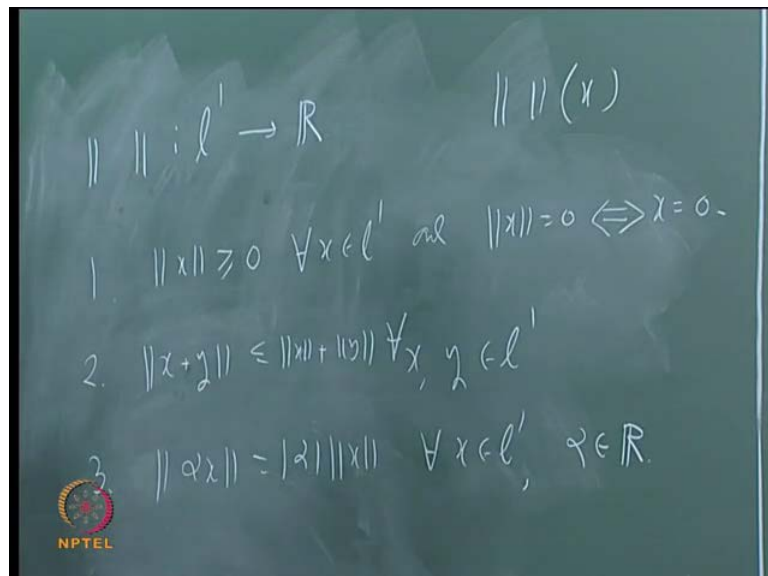 || || : l¹ → ℝ    || ||(x)
1. ||x|| ≥ 0 ∀ x ∈ l¹ and ||x|| = 0 ⇔ x = 0.
2. ||x + y|| ≤ ||x|| + ||y|| ∀ x, y ∈ l¹
3. ||αx|| = |α| ||x|| ∀ x ∈ l¹, α ∈ ℝ.
NPTEL